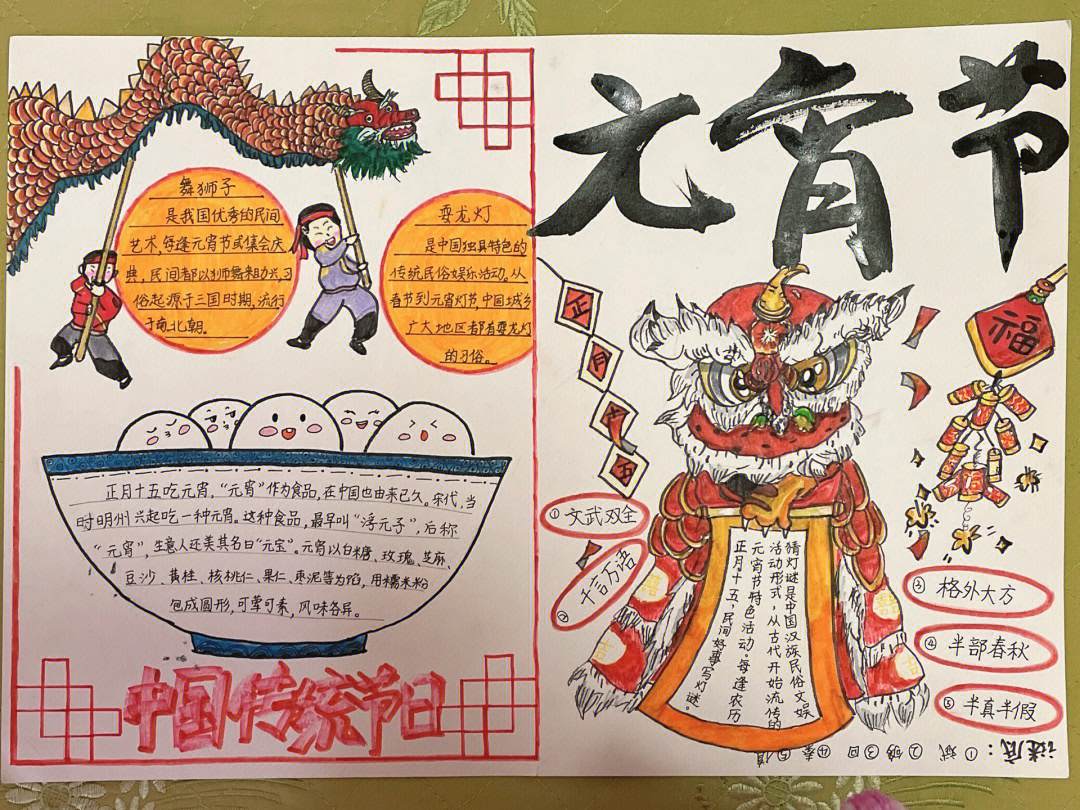 元宵节
舞狮子
是我国优秀的民间
艺术,每逢元宵节或集会庆
典,民间都以狮舞来助兴,习
俗起源于三国时期,流行
于南北朝。
耍龙灯
是中国独具特色的
传统民俗娱乐活动。从
春节到元宵灯节,中国城乡
广大地区都有耍龙灯
的习俗。
正月十五吃元宵,“元宵”作为食品,在中国也由来已久。宋代,当
时明州兴起吃一种元宵。这种食品,最早叫“浮元子”,后称
“元宵”,生意人还美其名曰“元宝”。元宵以白糖、玫瑰、芝麻、
豆沙、黄桂、核桃仁、果仁、枣泥等为馅,用糯米粉
包成圆形,可荤可素,风味各异。
中国传统节日
正
月
十
五
福
猜灯谜是中国汉族民俗文娱
活动形式,从古代开始流传的
元宵节特色活动。每逢农历
正月十五,民间好事写灯谜。
①文武双全
②千言万语
③格外大方
④半部春秋
⑤半真半假
谜底:①斌 ②够③回④秦⑤值